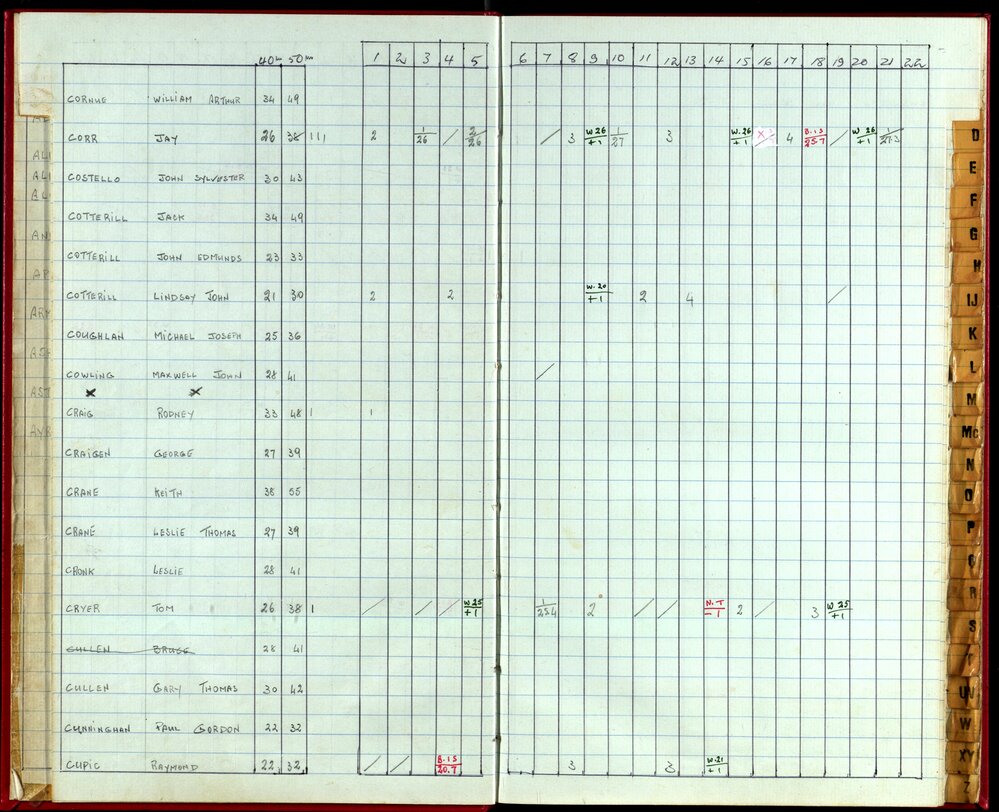 40m 50m 1 2 3 4 5 6 7 8 9 10 11 12 13 14 15 16 17 18 19 20 21 22
CORNUE WILLIAM ARTHUR 34 49
CORR JAY 26 38 111 2 1/26 / 2/26 / 3 W.26/+1 1/27 3 W.26/+1 X 4 B.1S/25.7 / W 26/+1 1/27.3
COSTELLO JOHN SYLVESTER 30 43
COTTERILL JACK 34 49
COTTERILL JOHN EDMUNDS 23 33
COTTERILL LINDSAY JOHN 21 30 2 2 W.20/+1 2 4 /
COUGHLAN MICHAEL JOSEPH 25 36
COWLING MAXWELL JOHN 28 41 /
X X
CRAIG RODNEY 33 48 1 1
CRAIGEN GEORGE 27 39
CRANE KEITH 38 55
CRANE LESLIE THOMAS 27 39
CRONK LESLIE 28 41
CRYER TOM 26 38 1 / / / W 25/+1 1/25.4 2 / / N.T/-1 2 / 3 W 25/+1
CULLEN BRUCE 28 41
CULLEN GARY THOMAS 30 42
CUNNINGHAN PAUL GORDON 22 32
CUPIC RAYMOND 22 32 / / B.1S/20.7 3 3 W.21/+1
D
E
F
G
H
IJ
K
L
M
Mc
N
O
P
Q
R
S
T
UV
W
XY
Z